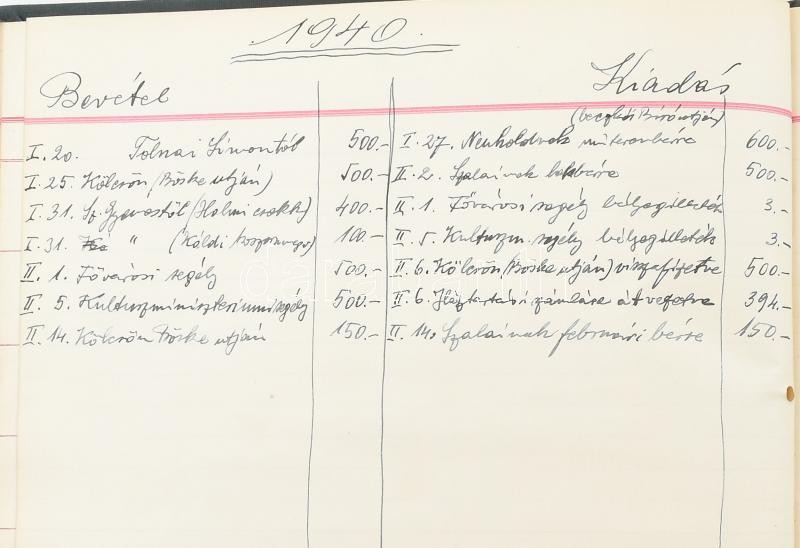 1940.
Bevétel
I. 20. Tolnai Simontól 500.-
I. 25. Kölcsön (Böske utján) 500.-
I. 31. Sz. (Holmi csekk) 400.-
I. 31. " (Káldi) 100.-
II. 1. Fővárosi segély 500.-
II. 5. Kulturzminiszteriumi segély 500.-
II. 14. Kölcsön Böske utján 150.-
Kiadás
(Biró utján)
I. 27. Neuholdnak műterembérre 600.-
II. 2. Szalainak lakbérre 500.-
II. 1. Fővárosi segély bélyegilleték 3.-
II. 5. Kulturzm. segély bélyegilleték 3.-
II. 6. Kölcsön (Böske utján) visszafizetve 500.-
II. 6. Háztartási számlára átvezetve 394.-
II. 14. Szalainak februári bérre 150.-